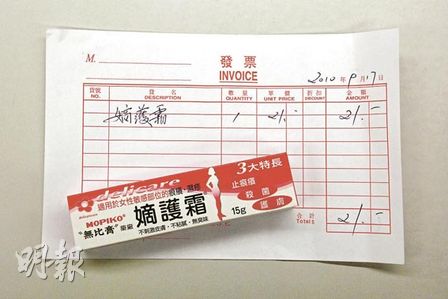 M.
發票
INVOICE
2010年9月17日
貨號 貨名 數量 單價 折扣 金額
NO. DESCRIPTION QUANTITY UNIT PRICE DISCOUNT AMOUNT
嫡護霜 1 21.- 21.-
delicare
適用於女性敏感部位的痕癢、濕疹
MOPIKO®
"無比膏"藥廠
嫡護霜
不刺激皮膚,不粘膩,無臭味
15g
3大特長
止痕癢
殺菌
護膚
合計
Total $ 21.-
明報